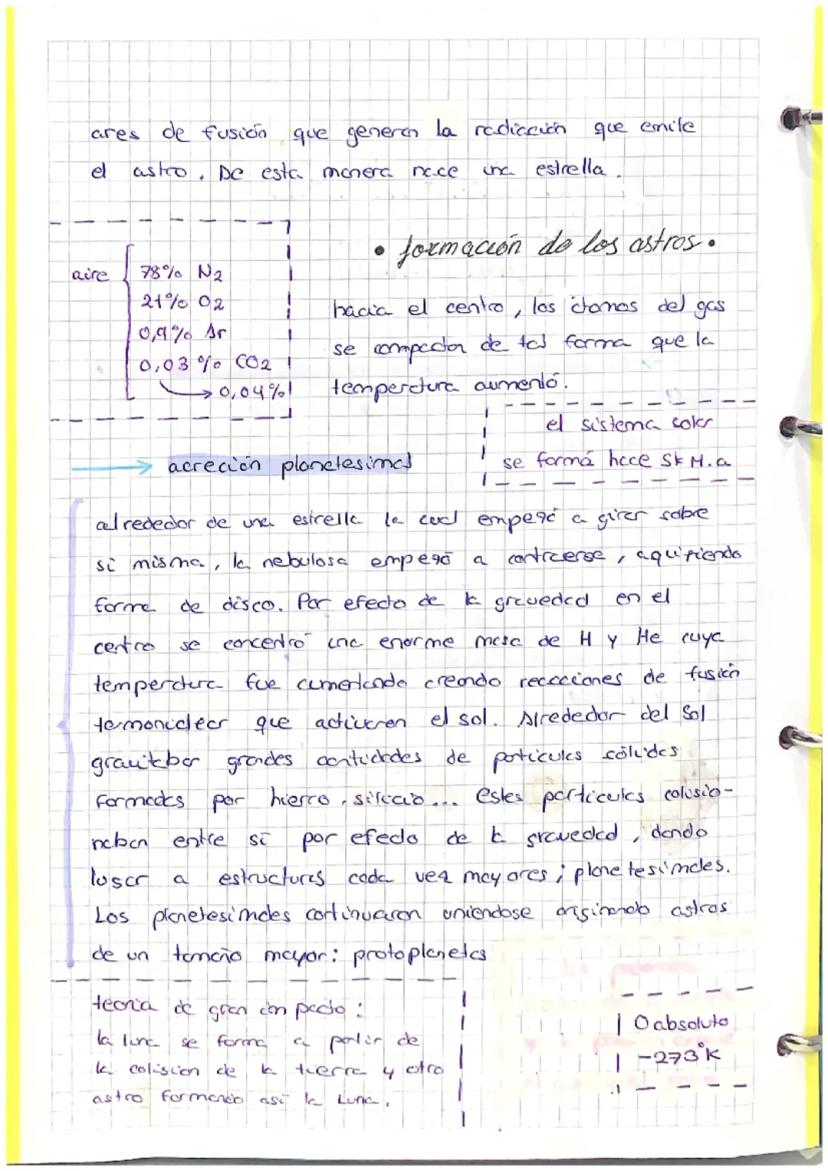 ares de fusión que generan la radiación que emite
el astro. De esta manera nace una estrella.
aire
78% N2
21% O2
0,9% Ar
0,03% CO2
→ 0,04%
• formación de los astros •
hacia el centro, los átomos del gas
se compactan de tal forma que la
temperatura aumentó.
el sistema solar
se formá hace M.a
→ acreción planetesimal
alrededor de una estrella la cual empezó a girar sobre
si misma, la nebulosa empezó a contraerse, aquiriendo
forma de disco. Por efecto de la gravedad en el
centro se concentró una enorme masa de H y He cuya
temperatura fue aumentando creando reacciones de fusión
termonuclear que activaron el sol. Alrededor del Sol
gravitaban grandes cantidades de partículas sólidas
formadas por hierro, silicio... Estas partículas colisio-
naban entre sí por efecto de la gravedad, dando
lugar a estructuras cada vez mayores; planetesimales.
Los planetesimales continuaron uniendose originando astros
de un tamaño mayor: protoplanetas
teoria de gran impacto:
la luna se forma a partir de
la colision de la tierra y otro
astro formando así la Luna.
0 absoluto
-273°K